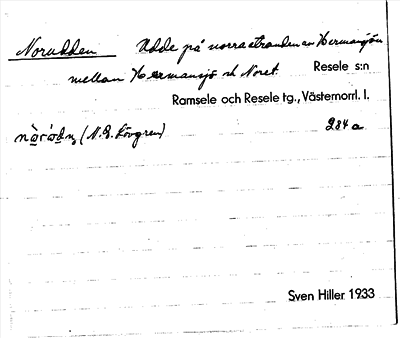 Norudden Udde på norra stranden av Hermansjön
mellan Hermansjö och Noret. Resele s:n
Ramsele och Resele tg., Västernorrl. l.
(N. E. Lövgren) 284 a
Sven Hiller 1933